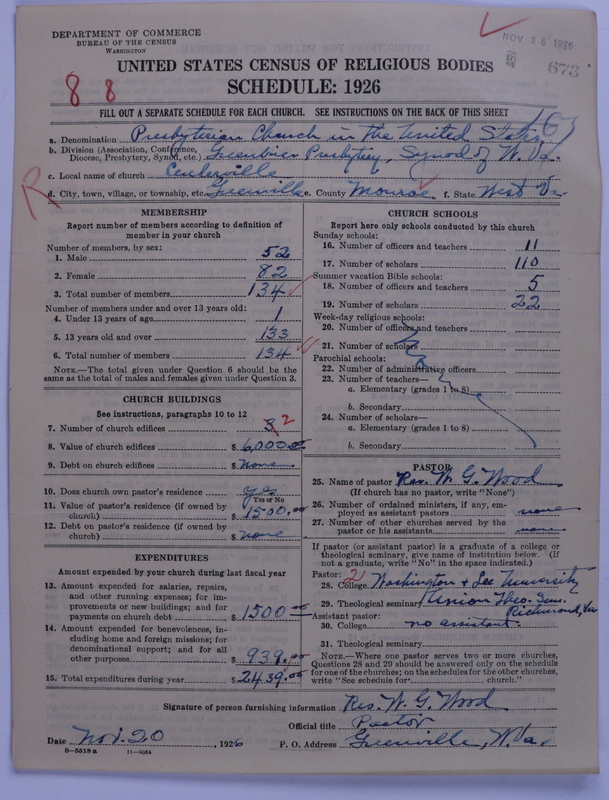 DEPARTMENT OF COMMERCE
BUREAU OF THE CENSUS
WASHINGTON
NOV 26 1926
673
88
UNITED STATES CENSUS OF RELIGIOUS BODIES
SCHEDULE: 1926
FILL OUT A SEPARATE SCHEDULE FOR EACH CHURCH. SEE INSTRUCTIONS ON THE BACK OF THIS SHEET
a. Denomination Presbyterian Church in the United States
b. Division (Association, Conference, Diocese, Presbytery, Synod, etc.) Greenbrier Presbytery, Synod of W. Va.
c. Local name of church Centerville
d. City, town, village, or township, etc. Greenville e. County Monroe f. State West Va.
R
MEMBERSHIP
Report number of members according to definition of member in your church
Number of members, by sex:
1. Male 52
2. Female 82
3. Total number of members 134
Number of members under and over 13 years old:
4. Under 13 years of age 1
5. 13 years old and over 133
6. Total number of members 134
NOTE.—The total given under Question 6 should be the same as the total of males and females given under Question 3.
CHURCH BUILDINGS
See instructions, paragraphs 10 to 12
7. Number of church edifices 3 2
8. Value of church edifices $ 6,000.00
9. Debt on church edifices $ None
10. Does church own pastor's residence yes
Yes or No
11. Value of pastor's residence (if owned by church) $ 1500.00
12. Debt on pastor's residence (if owned by church) $ none
EXPENDITURES
Amount expended by your church during last fiscal year
13. Amount expended for salaries, repairs, and other running expenses; for improvements or new buildings; and for payments on church debt $ 1500.00
14. Amount expended for benevolences, including home and foreign missions; for denominational support; and for all other purposes $ 939.00
15. Total expenditures during year $ 2439.00
CHURCH SCHOOLS
Report here only schools conducted by this church
Sunday schools:
16. Number of officers and teachers 11
17. Number of scholars 110
Summer vacation Bible schools:
18. Number of officers and teachers 5
19. Number of scholars 22
Week-day religious schools:
20. Number of officers and teachers
21. Number of scholars
Parochial schools:
22. Number of administrative officers
23. Number of teachers—
a. Elementary (grades 1 to 8)
b. Secondary
24. Number of scholars—
a. Elementary (grades 1 to 8)
b. Secondary
PASTOR
25. Name of pastor Rev. W. G. Wood
(If church has no pastor, write "None")
26. Number of ordained ministers, if any, employed as assistant pastors none
27. Number of other churches served by the pastor or his assistants none
If pastor (or assistant pastor) is a graduate of a college or theological seminary, give name of institution below. (If not a graduate, write "No" in the space indicated.)
Pastor: 2
28. College Washington & Lee University
29. Theological seminary Union Theo. Sem. Richmond, Va
Assistant pastor:
30. College no assistant.
31. Theological seminary
NOTE.—Where one pastor serves two or more churches, Questions 28 and 29 should be answered only on the schedule for one of the churches; on the schedules for the other churches, write "See schedule for church."
Signature of person furnishing information Rev. W. G. Wood
Official title Pastor
Date Nov. 20, 1926 P. O. Address Greenville, W. Va.
8-5518a 11-9354